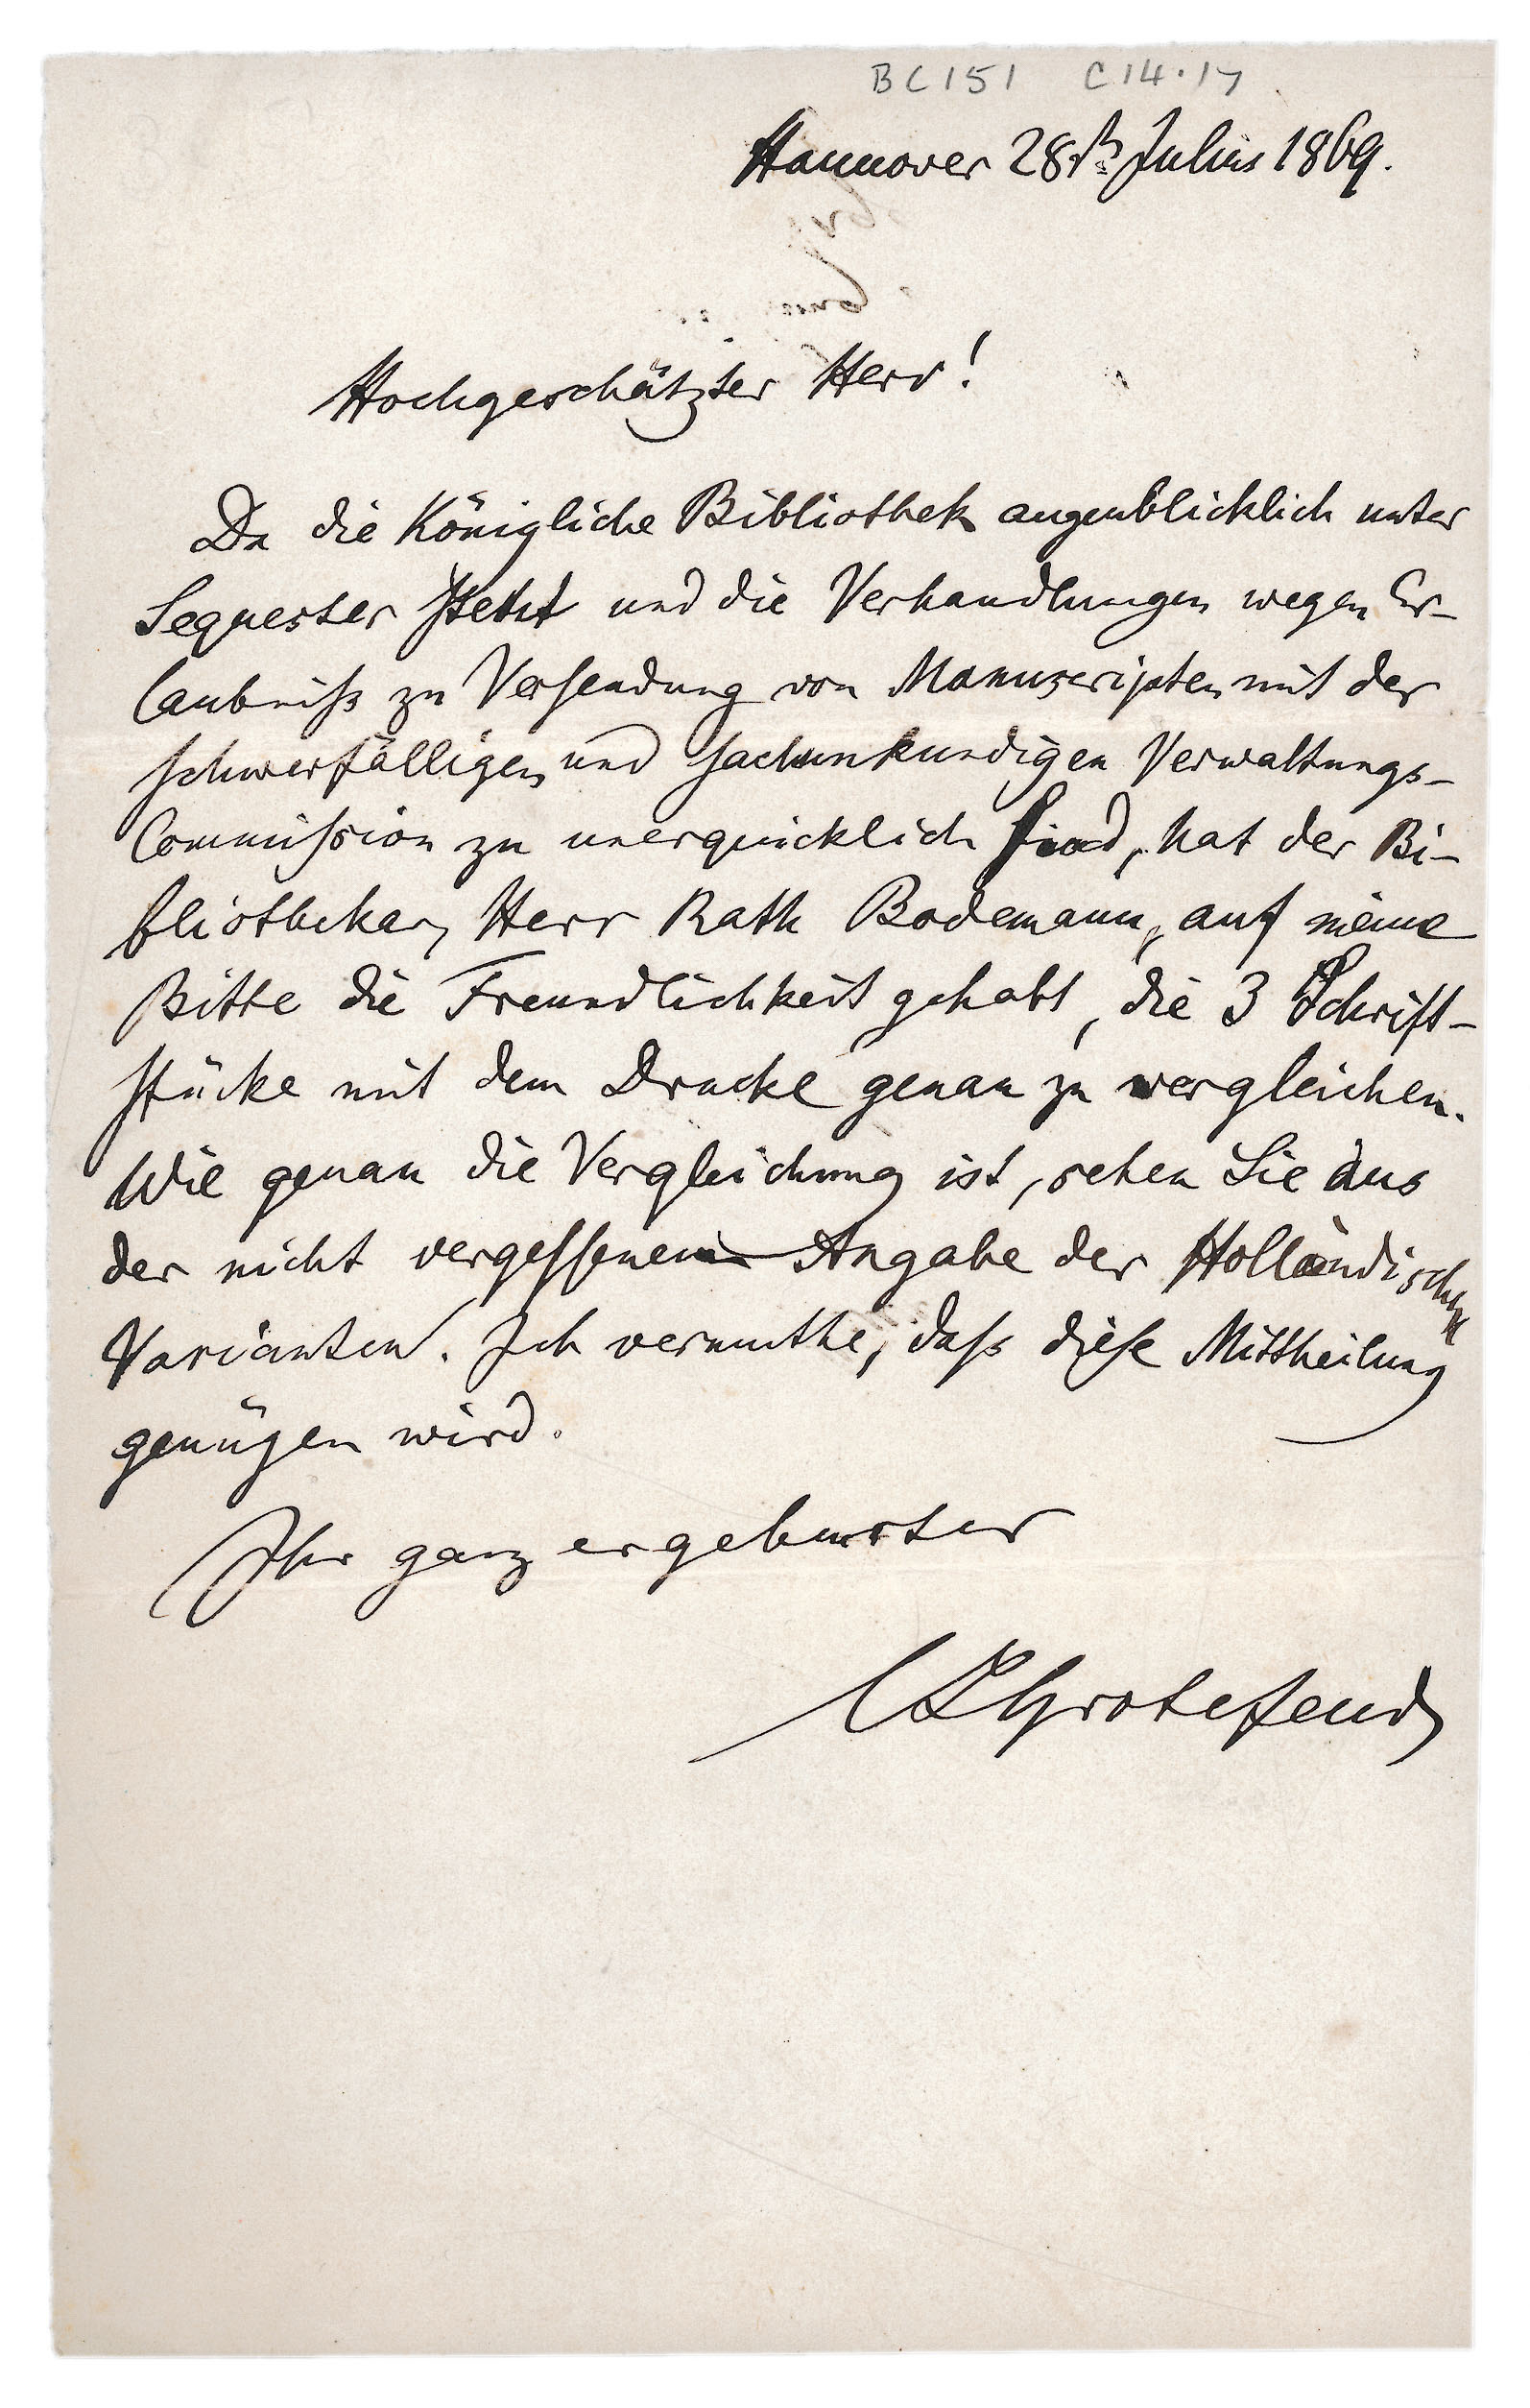 BC151 C14.17
Hannover 28st. Julius 1869.
Hochgeschätzter Herr!
Da die Königliche Bibliothek augenblicklich unter
Sequester steht und die Verhandlungen wegen Er-
laubniß zu Versendung von Manuscripten mit der
schwerfälligen und sachunkundigen Verwaltungs-
Commission zu unerquicklich sind, hat der Bi-
bliothekar, Herr Rath Bodemann, auf meine
Bitte die Freundlichkeit gehabt, die 3 Schrift-
stücke mit dem Drucke genau zu vergleichen.
Wie genau die Vergleichung ist, sehen Sie aus
der nicht vergessenen Angabe der Holländischen
Varianten. Ich vermuthe, daß diese Mittheilung
genügen wird.
Ihr ganz ergebenster
CLGrotefend